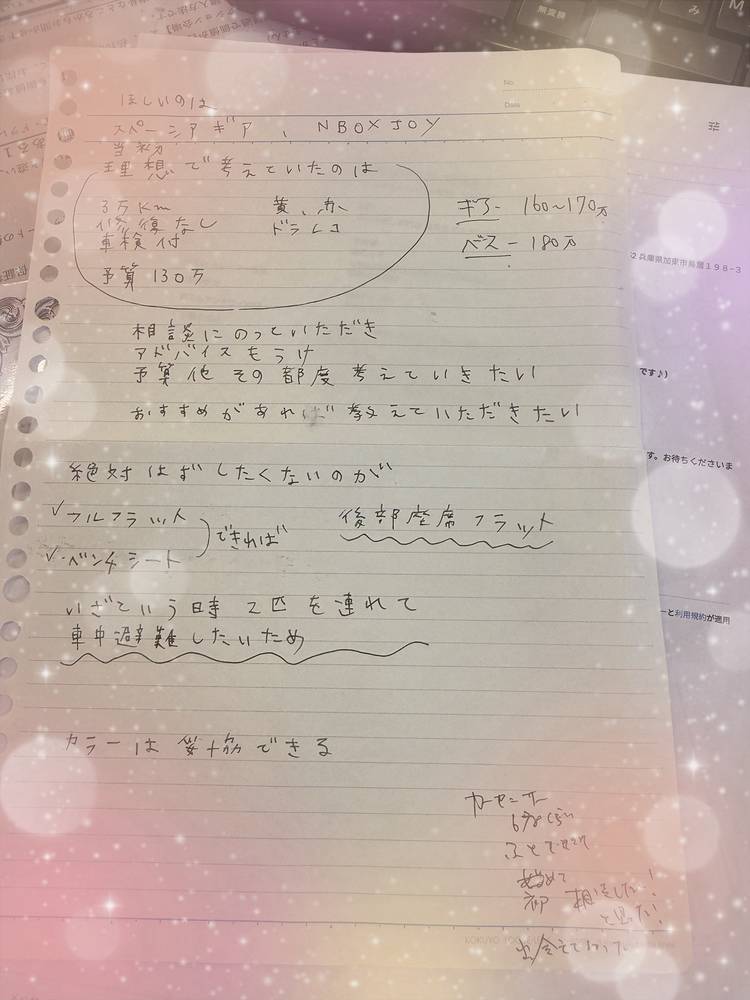 No.
Date
ほしいのは
スペーシアギア、NBOXJOY
当初
理想で考えていたのは
3万Km 黄、赤
修復なし ドラレコ
車検付
予算 130万
ギアー 160〜170万
ベスー 180万
相談にのっていただき
アドバイスもうけ
予算他 その都度考えていきたい
おすすめがあれば教えていただきたい
絶対はずしたくないのが
✓フルフラット
できれば
✓・ベンチシート
後部座席フラット
いざという時 2匹を連れて
車中避難したいため
カラーは妥協できる
カーセンサー
相談したい!
と思った!
兵庫県加東市鳥居198-3
です♪)
す。お待ちくださいま
ーと利用規約が適用
無変換
み
M